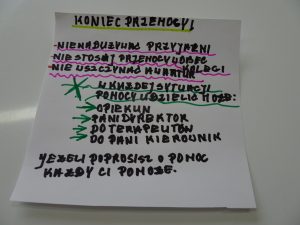 KONIEC PRZEMOCY!
- NIENADUŻYWAĆ PRZYJAŹNI
- NIESTOSUJ PRZEMOCY WOBEC KOLEGI
- NIE USZCZYNAĆ
W KAŻDEJ SYTUACJI
POMOCY UDZIELIĆ MOŻE:
→ OPIEKUN
→ PANI DYREKTOR
→ DO TERAPEUTÓW
→ DO PANI KIEROWNIK
JEŻELI POPROSISZ O POMOC
KAŻDY CI POMOŻE.